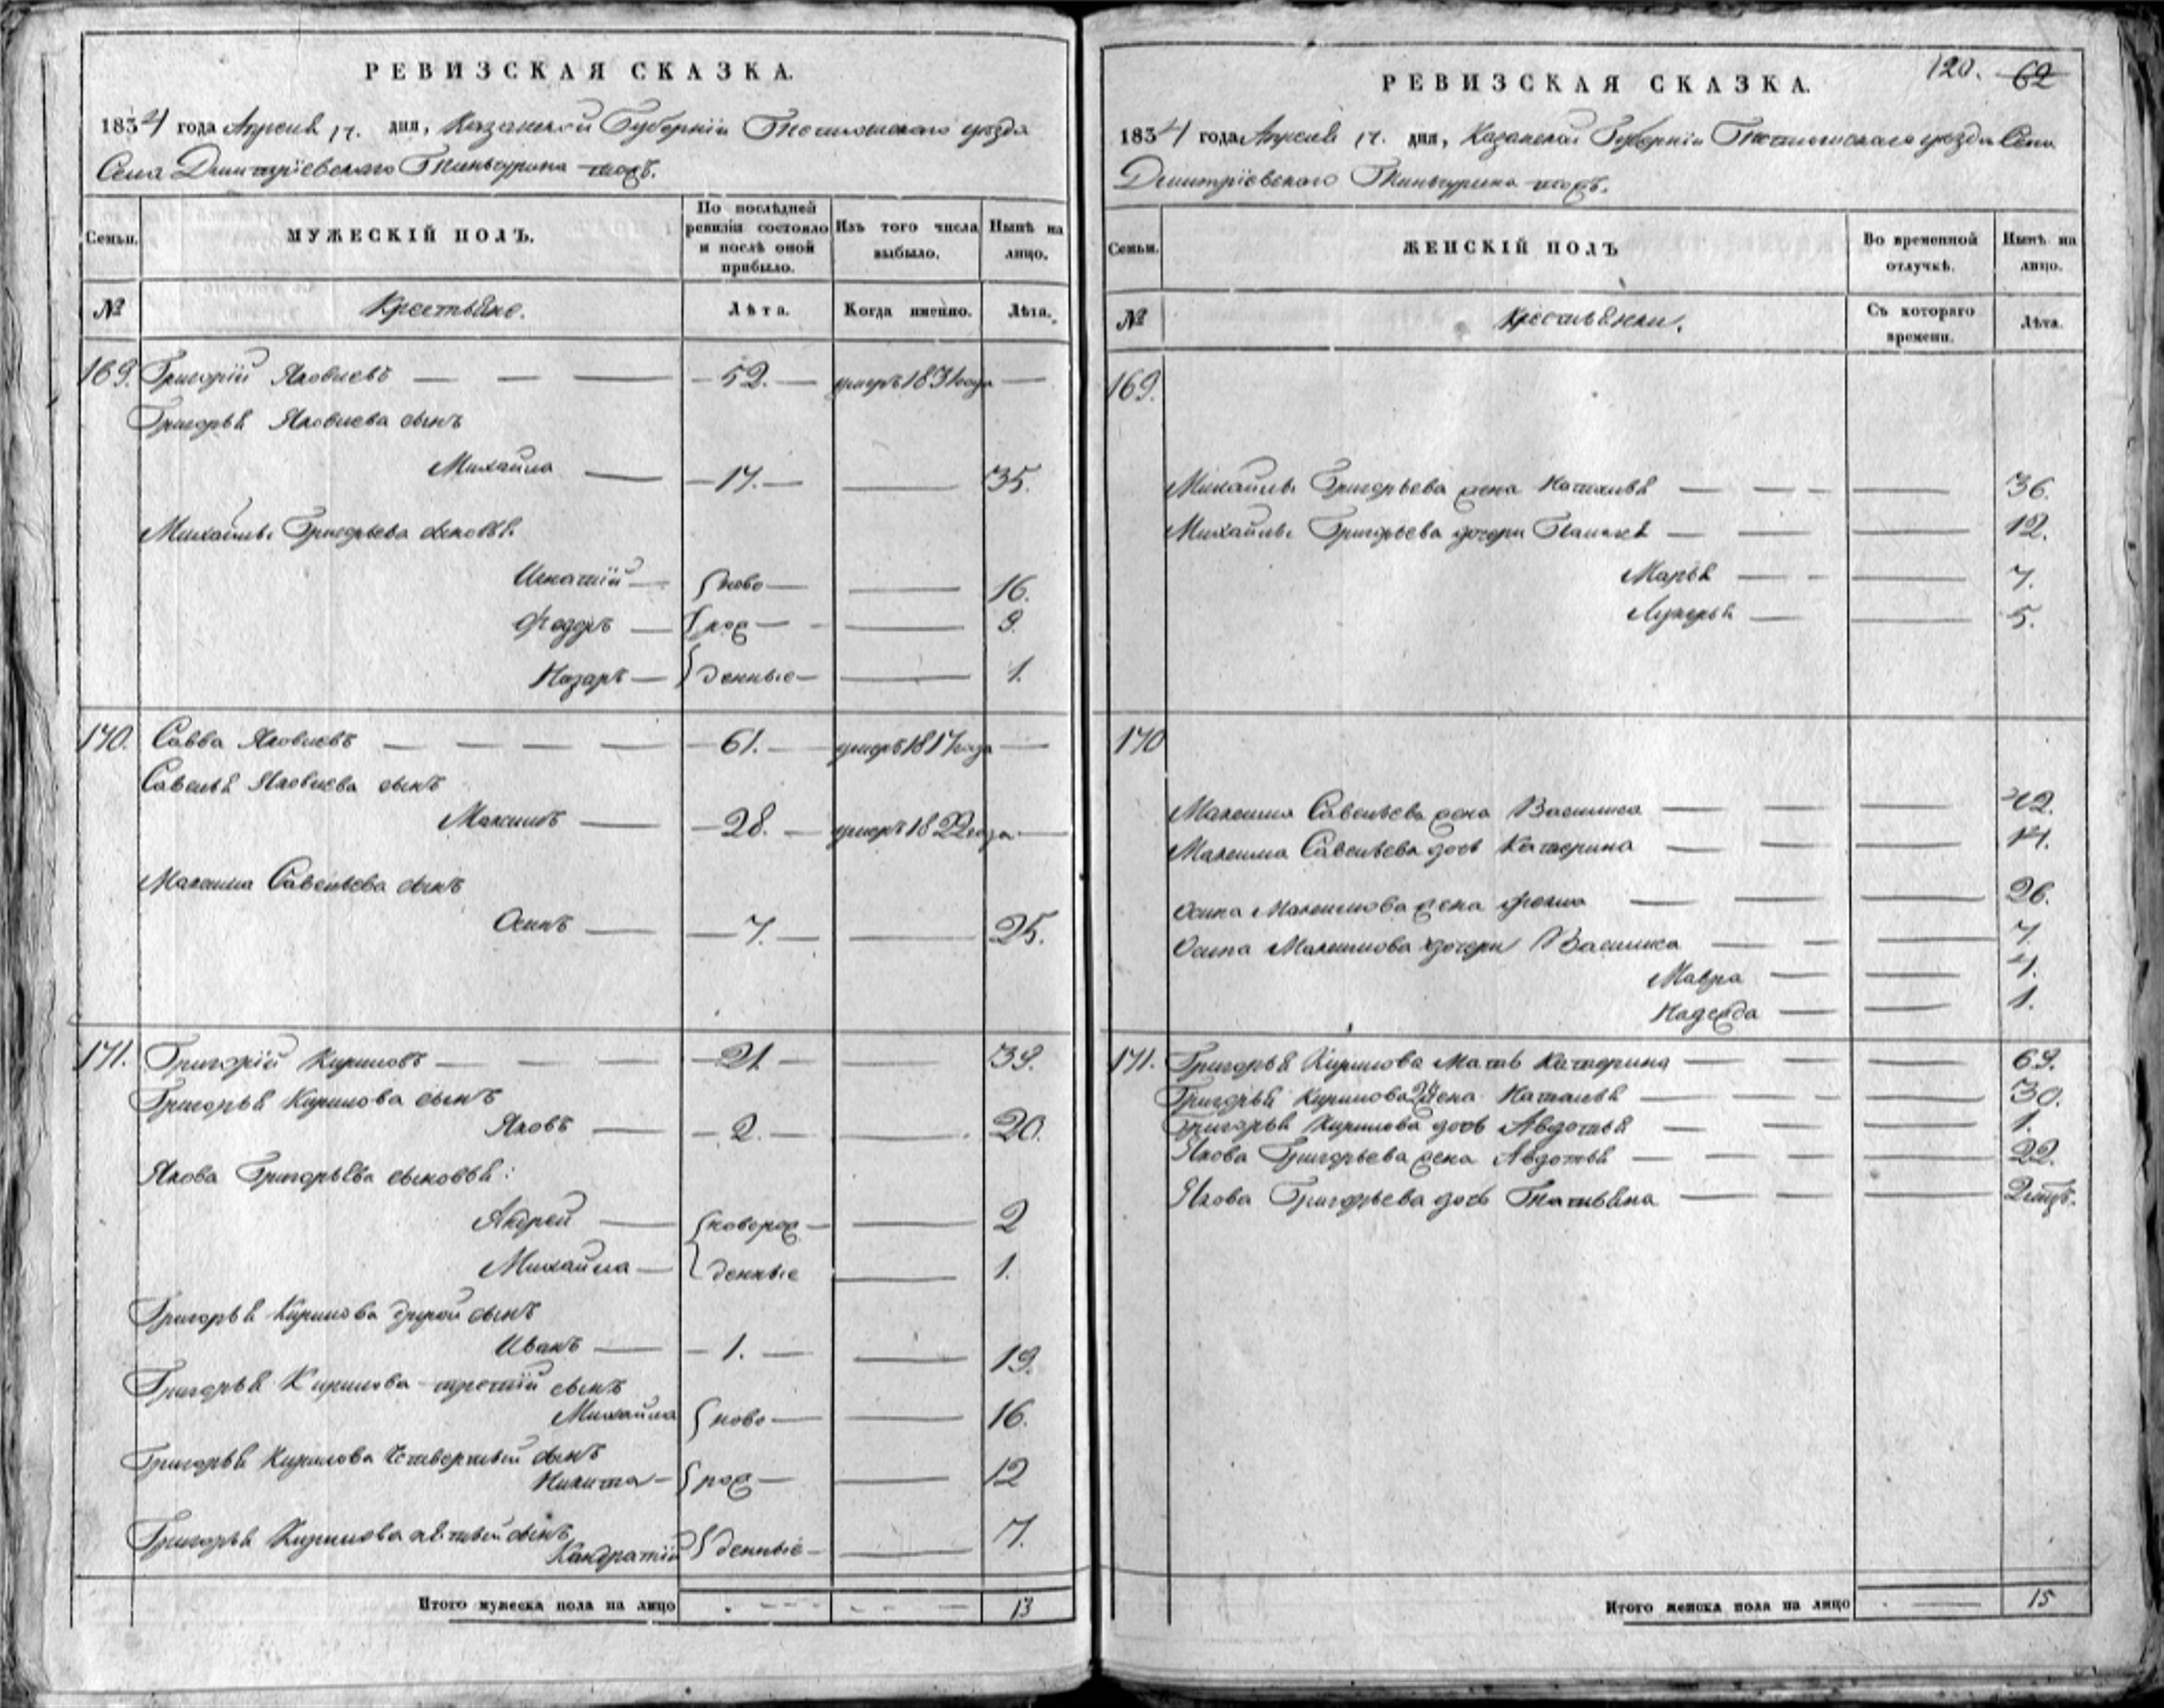 РЕВИЗСКАЯ СКАЗКА.
1834 года Апреля 17. дня, Казанской Губернiи уезда
Села Дмитрiевского Тинчурина тожъ.
Семьи.
МУЖЕСКIЙ ПОЛЪ.
По послѣдней ревизiи состояло и послѣ оной прибыло.
Изъ того числа выбыло.
Нынѣ на лицо.
№
Крестьяне.
Лѣта.
Когда именно.
Лѣта.
169. Григорiй Яковлевъ 52. умеръ 1831 года
Григорья Яковлева сынъ
Михайла 17. 35.
Михайлы Григорьева сыновья
Игнатiй ново 16.
Федоръ рож 9.
Назаръ денные 1.
170. Савва Яковлевъ 61. умеръ 1817 года
Савелья Яковлева сынъ
Максимъ 28. умеръ 1822 года
Максима Савельева сынъ
Осипъ 7. 25.
171. Григорiй Кириловъ 21. 39.
Григорья Кирилова сынъ
Яковъ 2. 20.
Якова Григорьева сыновья:
Андрей новорож 2
Михайла денные 1.
Григорья Кирилова другой сынъ
Иванъ 1. 19.
Григорья Кирилова третiй сынъ
Михайла ново 16.
Григорья Кирилова четвертый сынъ
Никита рож 12
Григорья Кирилова пятый сынъ
Кандратiй денные 7.
Итого мужеска пола на лицо 13
120. 62
РЕВИЗСКАЯ СКАЗКА.
1834 года Апреля 17. дня, Казанской Губернiи уезда Села
Дмитрiевского Тинчурина тожъ.
Семьи.
ЖЕНСКIЙ ПОЛЪ
Во временной отлучкѣ.
Нынѣ на лицо.
№
Крестьянки.
Съ котораго времени.
Лѣта.
169.
Михайлы Григорьева жена Наталья 36.
Михайлы Григорьева дочери 12.
Марья 7.
Лукерья 5.
170
Максима Савельева жена Василиса 42.
Максима Савельева дочь Катерина 14.
Осипа Максимова жена 26.
Осипа Максимова дочери Василиса 7.
Мавра 4.
Надежда 1.
171. Григорья Кирилова мать Катерина 69.
Григорья Кирилова 2я жена Наталья 30.
Григорья Кирилова дочь Авдотья 1.
Якова Григорьева жена Авдотья 22.
Якова Григорьева дочь Татьяна
Итого женска пола на лицо 15